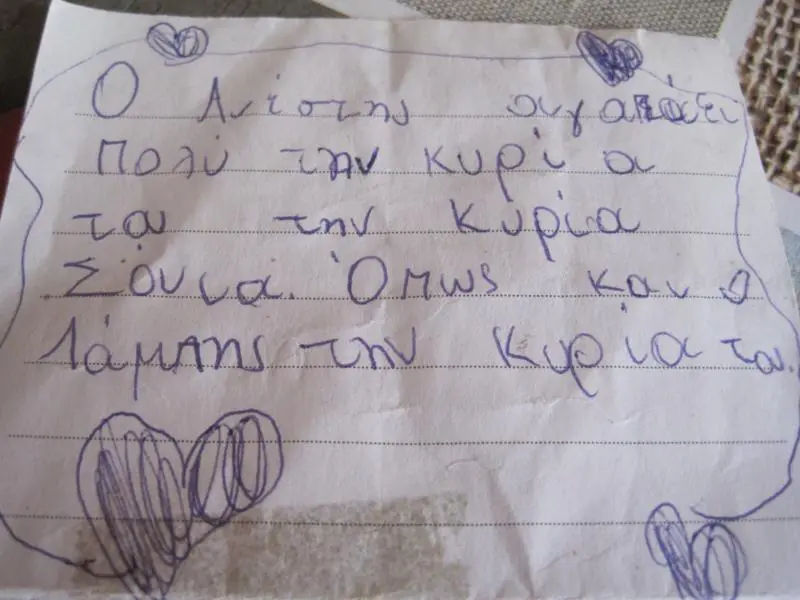 Ο Ανέστης αγαπάει
πολύ την κυρία
του την κυρία
Σόνια. Όμως και ο
Λάμπης την κυρία του.